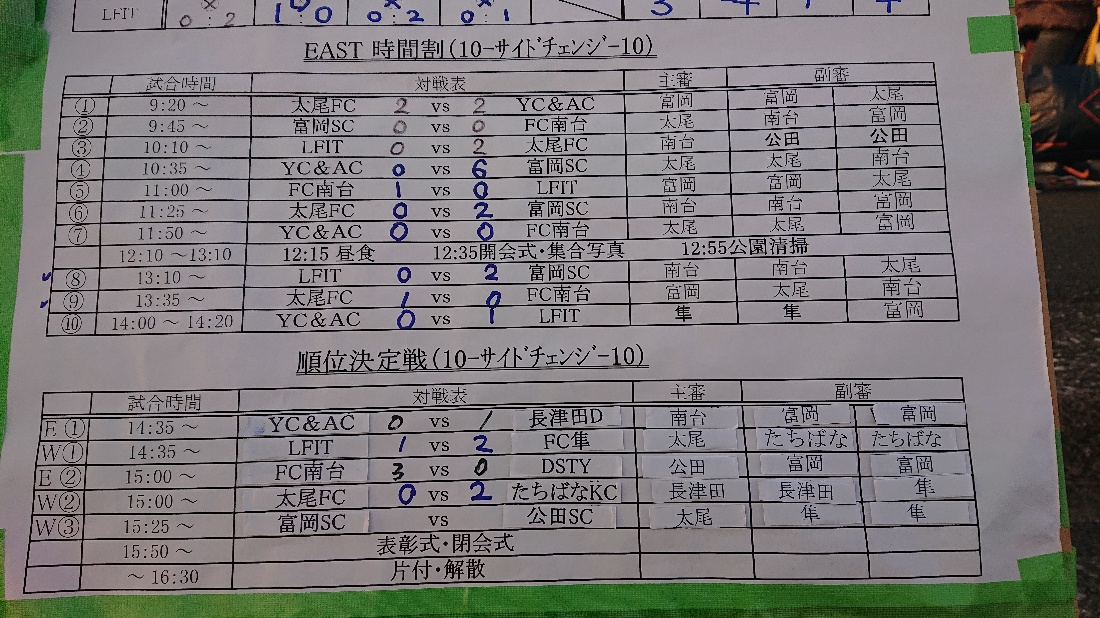 LFIT × 0:2 1:0 0:2 0:1 3 4
EAST 時間割(10-サイドチェンジ-10)
試合時間 対戦表 主審 副審
① 9:20 ～ 太尾FC 2 vs 2 YC&AC 富岡 富岡 太尾
② 9:45 ～ 富岡SC 0 vs 0 FC南台 太尾 南台 富岡
③ 10:10 ～ LFIT 0 vs 2 太尾FC 南台 公田 公田
④ 10:35 ～ YC&AC 0 vs 6 富岡SC 太尾 太尾 南台
⑤ 11:00 ～ FC南台 1 vs 0 LFIT 富岡 富岡 太尾
⑥ 11:25 ～ 太尾FC 0 vs 2 富岡SC 南台 南台 富岡
⑦ 11:50 ～ YC&AC 0 vs 0 FC南台 太尾 太尾 富岡
12:10 ～13:10 12:15 昼食 12:35開会式・集合写真 12:55公園清掃
⑧ 13:10 ～ LFIT 0 vs 2 富岡SC 南台 南台 太尾
⑨ 13:35 ～ 太尾FC 1 vs 0 FC南台 富岡 太尾 南台
⑩ 14:00 ～ 14:20 YC&AC 0 vs 1 LFIT 隼 隼 富岡
順位決定戦(10-サイドチェンジ-10)
試合時間 対戦表 主審 副審
E① 14:35 ～ YC&AC 0 vs 1 長津田D 南台 富岡 富岡
W① 14:35 ～ LFIT 1 vs 2 FC隼 太尾 たちばな たちばな
E② 15:00 ～ FC南台 3 vs 0 DSTY 公田 富岡 富岡
W② 15:00 ～ 太尾FC 0 vs 2 たちばなKC 長津田 長津田 隼
W③ 15:25 ～ 富岡SC vs 公田SC 太尾 隼 隼
15:50 ～ 表彰式・閉会式
～ 16:30 片付・解散